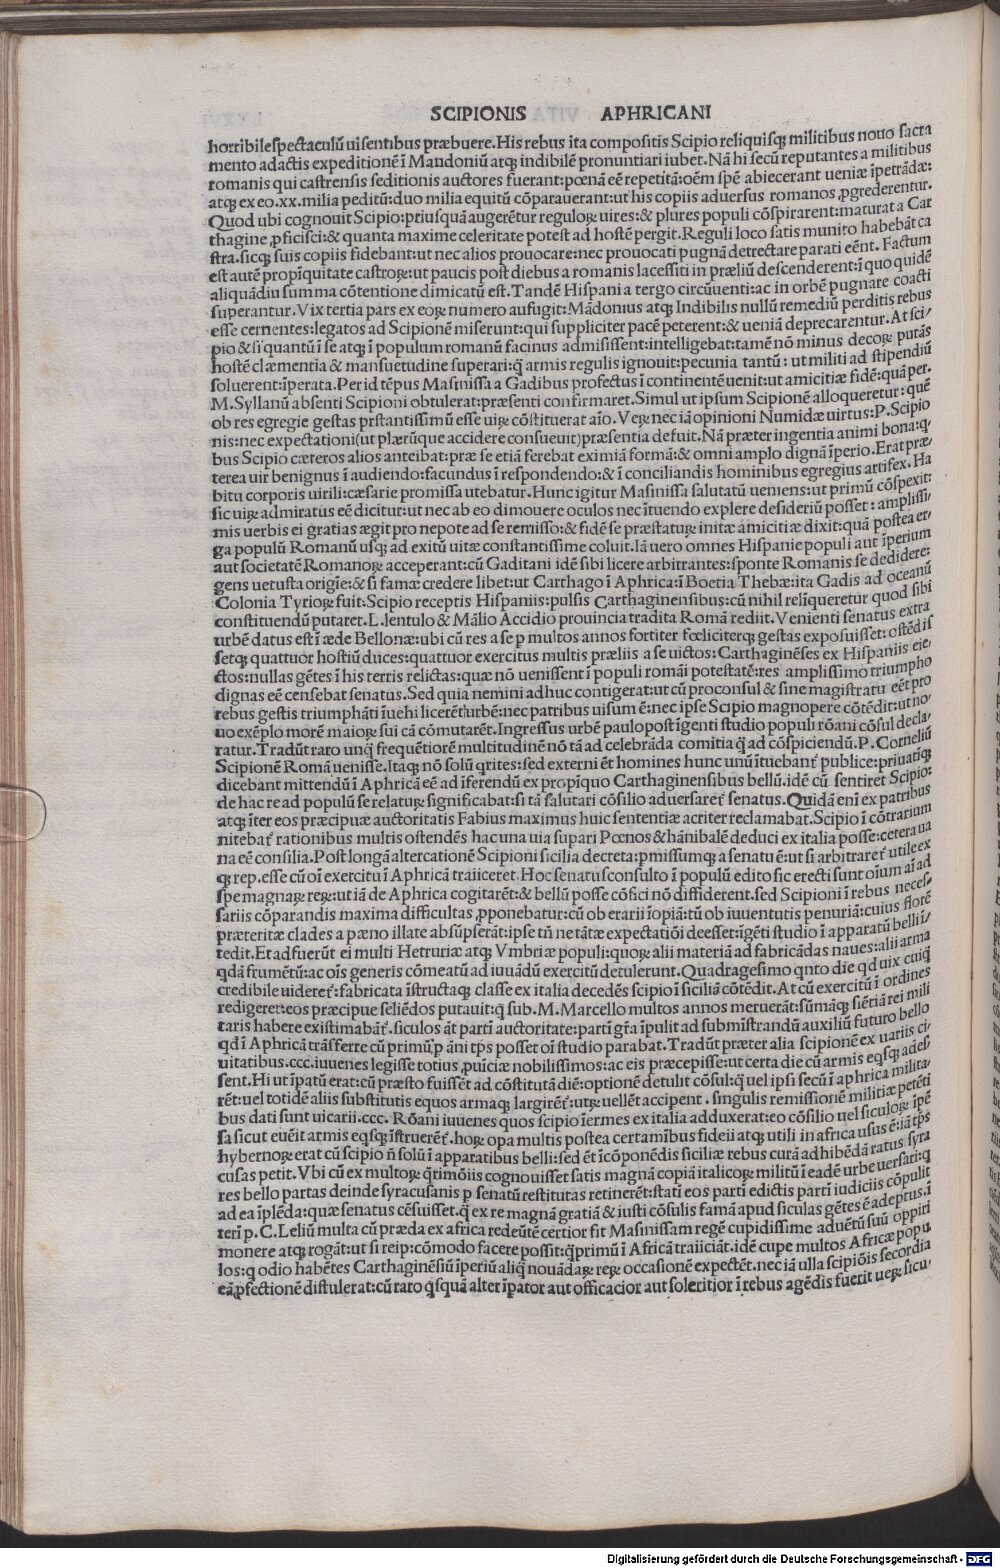 SCIPIONIS APHRICANI
horribile spectaculū uisentibus præbuere. His rebus ita compositis Scipio reliquisq; militibus nouo sacra
mento adactis expeditionē ī Mandoniū atq; indibilē pronuntiari iubet. Nā hi secū reputantes a militibus
romanis qui castrensis seditionis auctores fuerant: pœnā eē repetitā: oēm spē abiecerant ueniæ īpetrādæ:
atq; ex eo .xx. milia peditū: duo milia equitū cōparauerant: ut his copiis aduersus romanos ꝓgrederentur.
Quod ubi cognouit Scipio: priusquā augerētur reguloꝝ uires: & plures populi cōspirarent: maturat a Car
thagine ꝓficisci: & quanta maxime celeritate potest ad hostē pergit. Reguli loco satis munito habebāt ca
stra. sicq; suis copiis fidebant: ut nec alios prouocare: nec prouocati pugnā detrectare parati eēnt. Factum
est autē propīquitate castroꝝ: ut paucis post diebus a romanis lacessiti in præliū descenderent: ī quo quidē
aliquādiu summa cōtentione dimicatū est. Tandē Hispani a tergo circūuenti: ac in orbē pugnare coacti
superantur. Vix tertia pars ex eoꝝ numero aufugit: Mādonius atq; Indibilis nullū remediū perditis rebus
esse cernentes: legatos ad Scipionē miserunt: qui suppliciter pacē peterent: & ueniā deprecarentur. At sci/
pio & si quantū ī se atq; ī populum romanū facinus admisissent: intelligebat: tamē nō minus decoꝝ putās
hostē clæmentia & mansuetudine superari: q̄ armis regulis ignouit: pecunia tantū: ut militi ad stipendiū
soluerent: īperata. Per id tēpus Masinissa a Gadibus profectus ī continentē uenit: ut amicitiæ fidē: quā per.
M. Syllanū absenti Scipioni obtulerat: præsenti confirmaret. Simul ut ipsum Scipionē alloqueretur: quē
ob res egregie gestas prstantissimū esse uiꝝ cōstituerat aīo. Veꝝ nec iā opinioni Numidæ uirtus: P. Scipio
nis: nec expectationi (ut plærūque accidere consueuit) præsentia defuit. Nā præter ingentia animi bona: q̇
bus Scipio cæteros alios anteibat: præ se etiā ferebat eximiā formā: & omni amplo dignā īperio. Erat præ/
terea uir benignus ī audiendo: facundus ī respondendo: & ī conciliandis hominibus egregius artifex. Ha
bitu corporis uirili: cæsarie promissa utebatur. Hunc igitur Masinissa salutatū ueniens: ut primū cōspexit:
sic uiꝝ admiratus eē dicitur: ut nec ab eo dimouere oculos nec ītuendo explere desideriū posset: amplissi/
mis uerbis ei gratias ægit pro nepote ad se remisso: & fidē se præstatuꝝ initæ amicitiæ dixit: quā postea er/
ga populū Romanū usq; ad exitū uitæ constantissime coluit. Iā uero omnes Hispanie populi aut īperium
aut societatē Romanoꝝ acceperant: cū Gaditani idē sibi licere arbitrantes: sponte Romanis se dedidere:
gens uetusta origīe: & si famæ credere libet: ut Carthago ī Aphrica: ī Boetia Thebæ: ita Gadis ad oceanū
Colonia Tyrioꝝ fuit: Scipio receptis Hispaniis: pulsis Carthaginensibus: cū nihil relīqueretur quod sibi
constituendū putaret. L. lentulo & Mālio Accidio prouincia tradita Romā rediit. Venienti senatus extra
urbē datus est ī æde Bellonæ: ubi cū res a se p multos annos fortiter fœliciterq; gestas exposuisset: ostēdis
setq; quattuor hostiū duces: quattuor exercitus multis præliis a se uictos: Carthaginēses ex Hispaniis eie/
ctos: nullas gētes ī his terris relictas: quæ nō uenissent ī populi romāi potestatē: res amplissimo triumpho
dignas eē censebat senatus. Sed quia nemini adhuc contigerat: ut cū proconsul & sine magistratu eēt pro
rebus gestis triumphāti īuehi licerēt urbē: nec patribus uisum ē: nec ipse Scipio magnopere cōtēdit: ut no/
uo exēplo morē maioꝝ sui cā cōmutarēt. Ingressus urbē paulo post īgenti studio populi rōani cōsul decla/
ratur. Tradūt raro unq̄ frequētiorē multitudinē nō tā ad celebrāda comitia q̄ ad cōspiciendū. P. Corneliū
Scipionē Romā uenisse. Itaq; nō solū qrites: sed externi ēt homines hunc unū ītuebant̄ publice: priuatiq;
dicebant mittendū ī Aphricā eē ad īferendū ex propīquo Carthaginensibus bellū. idē cū sentiret Scipio:
de hac re ad populū se relatuꝝ significabat: si tā salutari cōsilio aduersaret̄ senatus. Quidā enī ex patribus
atq; īter eos præcipuæ auctoritatis Fabius maximus huic sententiæ acriter reclamabat. Scipio ī cōtrarium
nitebat̄ rationibus multis ostendēs hac una uia supari Pœnos & hānibalē deduci ex italia posse: cetera ua
na eē consilia. Post longā altercationē Scipioni sicilia decreta: pmissumq; a senatu ē: ut si arbitraret̄ utile ex
q; rep. esse cū oī exercitu ī Aphricā traiiceret. Hoc senatusconsulto ī populū edito sic erecti sunt oīum aī ad
spe magnaꝝ reꝝ: ut iā de Aphrica cogitarēt: & bellū posse cōfici nō diffiderent. sed Scipioni ī rebus neces/
sariis cōparandis maxima difficultas ꝓponebatur: cū ob erarii īopiā: tū ob iuuentutis penuriā: cuius florē
præteritæ clades a pæno illate absūpserāt: ipse tn̄ ne tātæ expectatiōi deesset: īgēti studio ī apparatū belli ī/
tedit. Et adfuerūt ei multi Hetruriæ atq; Vmbriæ populi: quoꝝ alii materiā ad fabricādas naues: alii arma
qdā frumētū: ac oīs generis cōmeatū ad iuuādū exercitū detulerunt. Quadragesimo qnto die qd uix cuiq̄
credibile uideret̄: fabricata īstructaq; classe ex italia decedēs scipio ī siciliā cōtēdit. At cū exercitū ī ordines
redigeret: eos præcipue seliēdos putauit: q̄ sub. M. Marcello multos annos meruerāt: sūmāq; sciētiā rei mili
taris habere existimabāt̄. siculos āt partī auctoritate: partī gr̄a īpulit ad submīstrandū auxiliū futuro bello
qd ī Aphricā trāsferre cū primū p āni tp̄s posset oī studio parabat. Tradūt præter alia scipionē ex uariis ci/
uitatibus .ccc. iuuenes legisse totius ꝓuiciæ nobilissimos: ac eis præcepisse: ut certa die cū armis eqsq; ades/
sent. Hi ut īpatū erat: cū præsto fuissēt ad cōstitutā diē: optionē detulit cōsul: q̄ uel ipsi secū ī aphrica milita/
rēt: uel totidē aliis substitutis equos armaq; largirēt̄: utꝝ uellēt accipent. singulis remissionē militiæ petēti
bus dati sunt uicarii .ccc. Rōani iuuenes quos scipio īermes ex italia adduxerat: eo cōsilio uel siculoꝝ īpē
sa sicut euēit armis eqsq; īstrueret̄. hoꝝ opa multis postea certamībus fideii atq; utili in africa usus ē: iā tp̄s
hybernoꝝ erat cū scipio n̄ solū ī apparatibus belli: sed ēt īcōponēdis siciliæ rebus curā adhibēdā ratus syra
cusas petit. Vbi cū ex multoꝝ q̄rimōiis cognouisset satis magnā copiā italicoꝝ militū ī eadē urbe uersari: q
res bello partas deinde syracusanis p senatū restitutas retinerēt: statī eos partī edictis partī iudiciis cōpulit
ad ea īplēda: quæ senatus cēsuisset. q̄ ex re magnā gratiā & iusti cōsulis famā apud siculas gētes ē adeptus. ī
terī p. C. Leliū multa cū præda ex africa redeūtē certior fit Masinissam regē cupidissime aduētū suū oppiri
monere atq; rogāt: ut si reip: cōmodo facere possit: q̄primū ī Africā traiiciāt. idē cupe multos Africæ popu
los: q odio habētes Carthaginēsiū īperiū aliq̄ nouādaꝝ reꝝ occasionē expectēt. nec iā ulla scipiōis secordia
eā ꝓfectionē distulerat: cū raro q̄squā alter īpator aut officacior aut solertior ī rebus agēdis fuerit ueꝝ sicu/
Digitalisierung gefördert durch die Deutsche Forschungsgemeinschaft - DFG